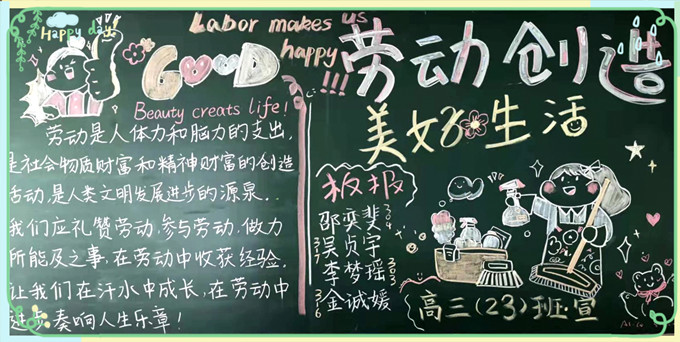 Happy day!
GOOD
Labor makes us
happy !!!
Beauty creats life!
劳动是人体力和脑力的支出,
是社会物质财富和精神财富的创造
活动,是人类文明发展进步的源泉..
我们应礼赞劳动,参与劳动,做力
所能及之事,在劳动中收获经验,
让我们在汗水中成长,在劳动中
奏响人生乐章!
劳动创造
美好生活
板报
邵奕斐 304
317 吴贞宇
李梦瑶 303
316 金诚媛
高三(23)班宣